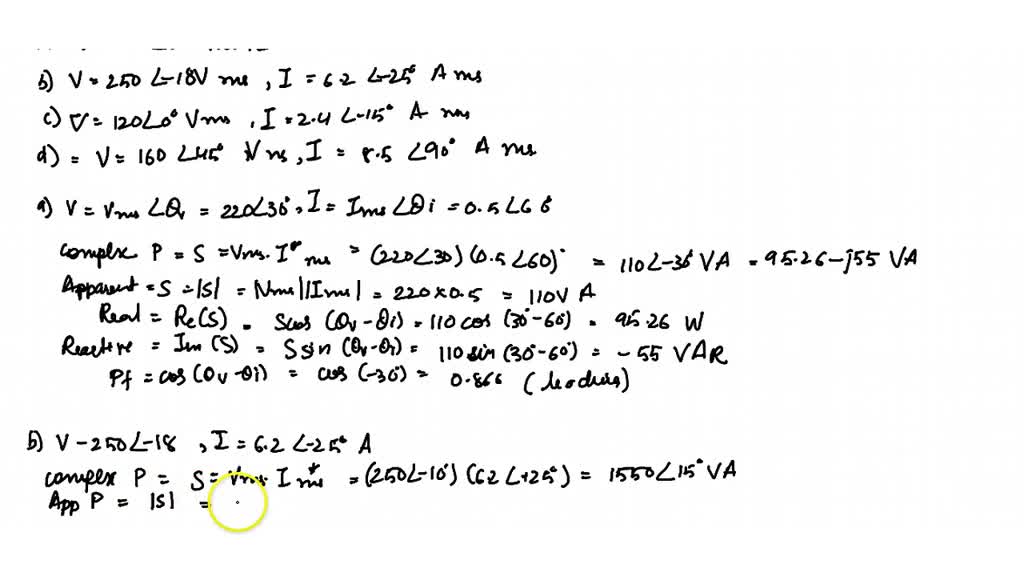 b) V = 250 ∠-18V ms, I = 6.2 ∠-25° A ms
c) V = 120∠0° Vms, I = 2.4 ∠-15° A ms
d) = V = 160 ∠45° Vms, I = 8.5 ∠90° A ms
a) V = Vms ∠θv = 220∠30°, I = Ims ∠θi = 0.5∠60
complex P = S = Vms. I* ms = (220∠30) (0.5∠60)° = 110∠-30° VA = 95.26-j55 VA
Apparent = S = |S| = |Vms||Ims| = 220×0.5 = 110V A
Real = Re(S) = Scos (θv-θi) = 110 cos (30°-60°) = 95.26 W
Reactive = Im (S) = S sin (θv-θi) = 110 sin (30°-60°) = -55 VAR
Pf = cos (θv-θi) = cos (-30°) = 0.866 (leading)
b) V - 250∠-18, I = 6.2 ∠-25° A
complex P = S = Vms. I* ms = (250∠-10°) (62∠+25°) = 1550∠15° VA
App P = |S| =